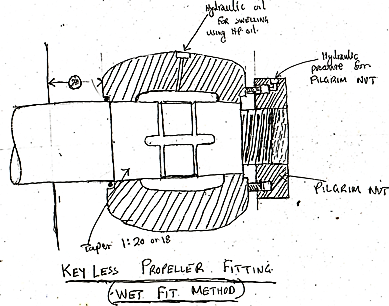 Hydraulic oil
for swelling
using HP oil.
Hydraulic
pressure for
PILGRIM NUT
PILGRIM NUT
Taper 1:20 or 18
KEY LESS PROPELLER FITTING.
WET FIT METHOD